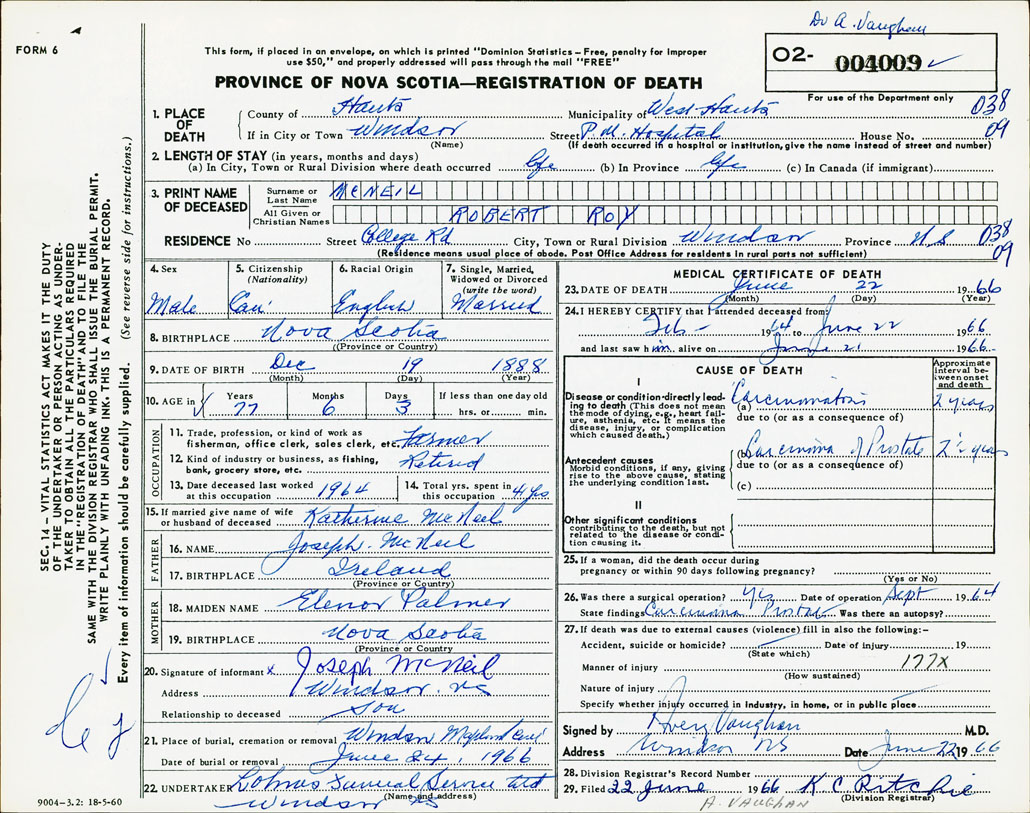 Dr A. Vaughan
FORM 6
This form, if placed in an envelope, on which is printed "Dominion Statistics – Free, penalty for improper
use $50," and properly addressed will pass through the mail "FREE"
PROVINCE OF NOVA SCOTIA—REGISTRATION OF DEATH
O2- 004009 ✓
For use of the Department only
1. PLACE OF DEATH
County of Hants Municipality of West Hants 038
If in City or Town Windsor Street P.M. Hospital House No. 09
(Name) (If death occurred in a hospital or institution, give the name instead of street and number)
2. LENGTH OF STAY (in years, months and days)
(a) In City, Town or Rural Division where death occurred life (b) In Province life (c) In Canada (if immigrant)
3. PRINT NAME OF DECEASED
Surname or Last Name MCNEIL
All Given or Christian Names ROBERT ROY
RESIDENCE No Street College Rd City, Town or Rural Division Windsor Province N S 038
(Residence means usual place of abode. Post Office Address for residents in rural parts not sufficient) 09
4. Sex
Male
5. Citizenship
(Nationality)
Can
6. Racial Origin
English
7. Single, Married,
Widowed or Divorced
(write the word)
Married
8. BIRTHPLACE Nova Scotia
(Province or Country)
9. DATE OF BIRTH Dec 19 1888
(Month) (Day) (Year)
10. AGE in Years Months Days If less than one day old
77 6 3 hrs. or min.
OCCUPATION
11. Trade, profession, or kind of work as
fisherman, office clerk, sales clerk, etc. Farmer
12. Kind of industry or business, as fishing,
bank, grocery store, etc. Retired
13. Date deceased last worked
at this occupation 1964
14. Total yrs. spent in
this occupation 41 yrs
15. If married give name of wife
or husband of deceased Katherine McNeil
FATHER
16. NAME Joseph McNeil
17. BIRTHPLACE Ireland
(Province or Country)
MOTHER
18. MAIDEN NAME Elenor Palmer
19. BIRTHPLACE Nova Scotia
(Province or Country)
20. Signature of informant x Joseph McNeil
Address Windsor. NS
Relationship to deceased Son
21. Place of burial, cremation or removal Windsor
Date of burial or removal June 24, 1966
22. UNDERTAKER Funeral Service Ltd
(Name and address)
Windsor NS
9004-3.2: 18-5-60
MEDICAL CERTIFICATE OF DEATH
23. DATE OF DEATH June 22 1966
(Month) (Day) (Year)
24. I HEREBY CERTIFY that I attended deceased from
Feb - 1964 to June 22 1966
and last saw him alive on June 21 1966
CAUSE OF DEATH
Approximate
interval be-
tween onset
and death
I
Disease or condition directly lead-
ing to death (This does not mean
the mode of dying, e.g., heart fail-
ure, asthenia, etc. It means the
disease, injury, or complication
which caused death.)
(a) Carcinomatosis 2 years
due to (or as a consequence of)
Antecedent causes
Morbid conditions, if any, giving
rise to the above cause, stating
the underlying condition last.
(b) Carcinoma of Prostate 2½ years
due to (or as a consequence of)
(c)
II
Other significant conditions
contributing to the death, but not
related to the disease or condi-
tion causing it.
25. If a woman, did the death occur during
pregnancy or within 90 days following pregnancy?
(Yes or No)
26. Was there a surgical operation? yes Date of operation Sept 1964
State findings Carcinoma Prostate Was there an autopsy?
27. If death was due to external causes (violence) fill in also the following:–
Accident, suicide or homicide? Date of injury 19
(State which)
Manner of injury 177X
(How sustained)
Nature of injury
Specify whether injury occurred in industry, in home, or in public place
Signed by Avery Vaughan M.D.
Address Windsor NS Date June 22 1966
28. Division Registrar's Record Number
29. Filed 22 June 1966 K C Ritchie
(Division Registrar)
A. VAUGHAN
SEC. 14 – VITAL STATISTICS ACT MAKES IT THE DUTY
OF THE UNDERTAKER OR PERSON ACTING AS UNDER-
TAKER TO OBTAIN ALL THE PARTICULARS REQUIRED
IN THE "REGISTRATION OF DEATH" AND TO FILE THE
SAME WITH THE DIVISION REGISTRAR WHO SHALL ISSUE THE BURIAL PERMIT.
WRITE PLAINLY WITH UNFADING INK. THIS IS A PERMANENT RECORD.
Every item of information should be carefully supplied. (See reverse side for instructions.)